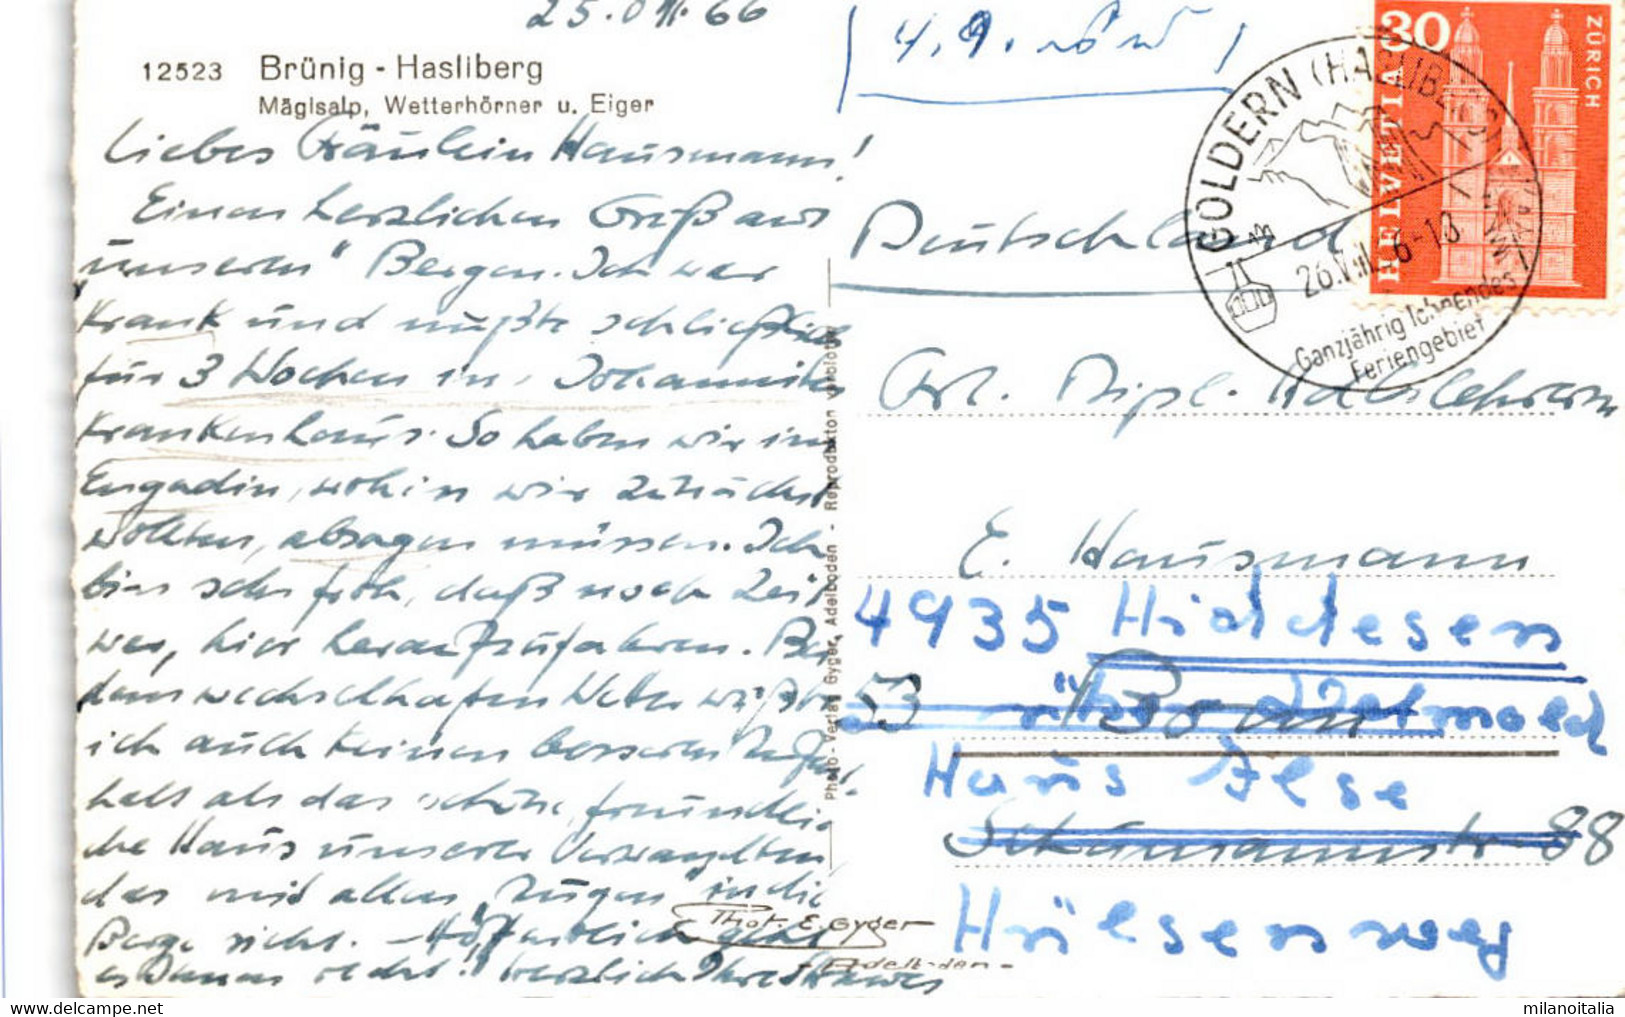 12523 Brünig - Hasliberg
Mäglsalp, Wetterhörner u. Eiger
Liebes Fräulein Hausmann!
Einen herzlichen Gruß aus
"unseren" Bergen. Ich war
krank und mußte schließlich
für 3 Wochen ins Johanniter
Krankenhaus. So haben wir im
Engadin, wohin wir zunächst
wollten, absagen müssen. Ich
bin sehr froh, daß noch Zeit
war, hier heraufzufahren. Bei
dem wechselhaften Wetter wüßte
ich auch keinen besseren Aufent-
halt als das schöne, freundli-
che Haus unserer Verwandten
das mit allen "Augen" in die
Berge sieht. - Hoffentlich geht
es Ihnen recht gut! Herzlich Ihre
Photo-Verlag Gyger, Adelboden - Reproduktion verboten
Phot. E. Gyger
- Adelboden -
4.9.
30
HELVETIA
ZÜRICH
GOLDERN (HASLIBERG)
26.VIII. 6-18
Ganzjährig lohnendes
Feriengebiet
Deutschland
Frl. Dipl.
E. Hausmann
4935 Hiddesen
53 Bonn
über Detmold
Haus Ilse
Schumannstr. 88
Hülsenweg
milanoitalia